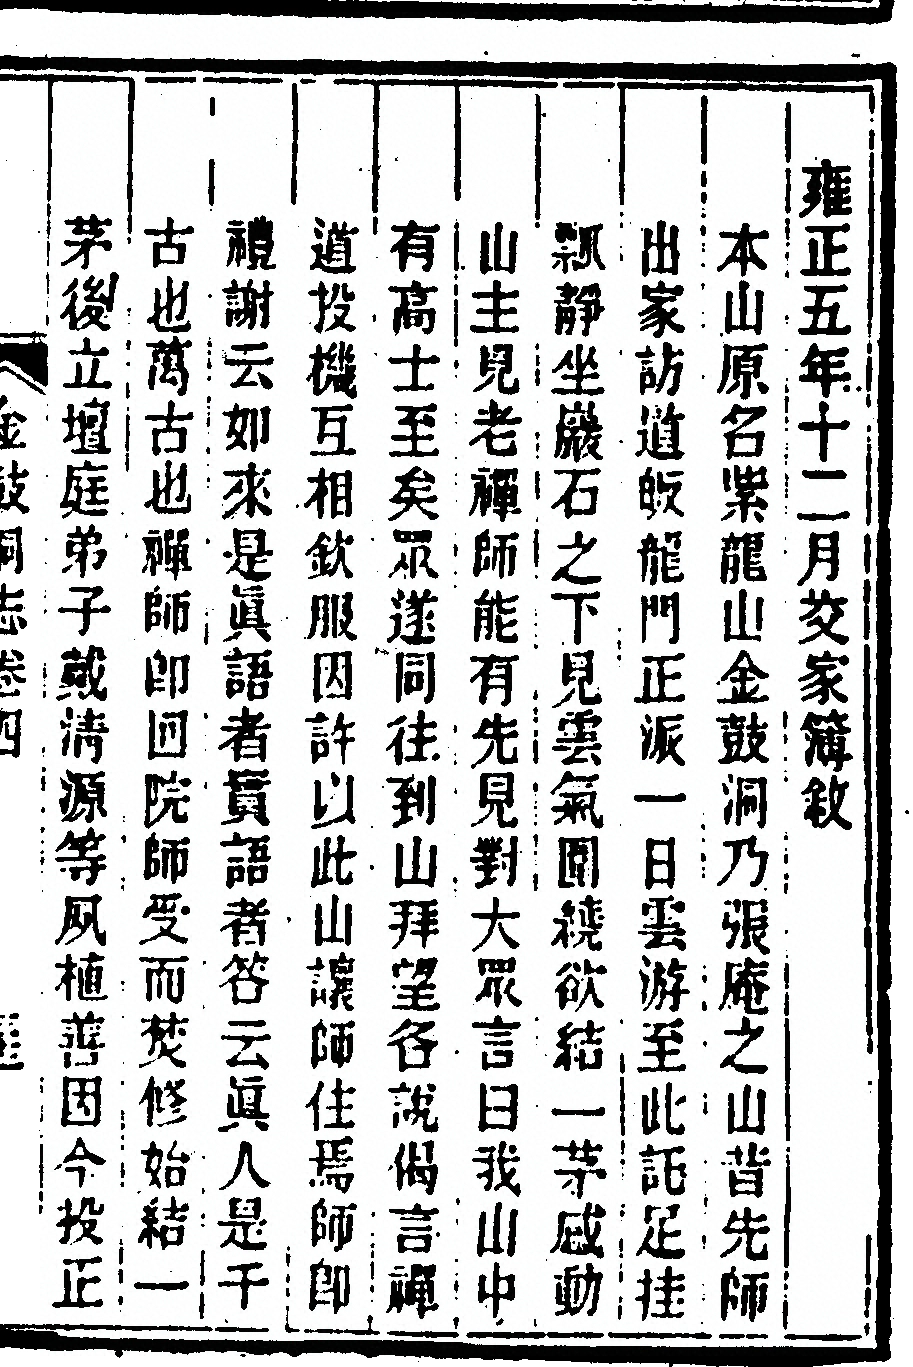 雍正五年十二月交家簿敘
本山原名紫龍山金鼓洞乃張庵之山昔先師
出家訪道皈龍門正派一日雲游至此託足挂
瓢靜坐巖石之下見雲氣圍繞欲結一茅感動
山主見老禪師能有先見對大眾言曰我山中
有高士至矣眾遂同往到山拜望各說偈言禪
道投機互相欽服因許以此山讓師住焉師即
禮謝云如來是眞語者實語者答云眞人是千
古也萬古也禪師即回院師受而焚修始結一
茅後立壇庭弟子戴清源等夙植善因今投正
金鼓洞志卷四